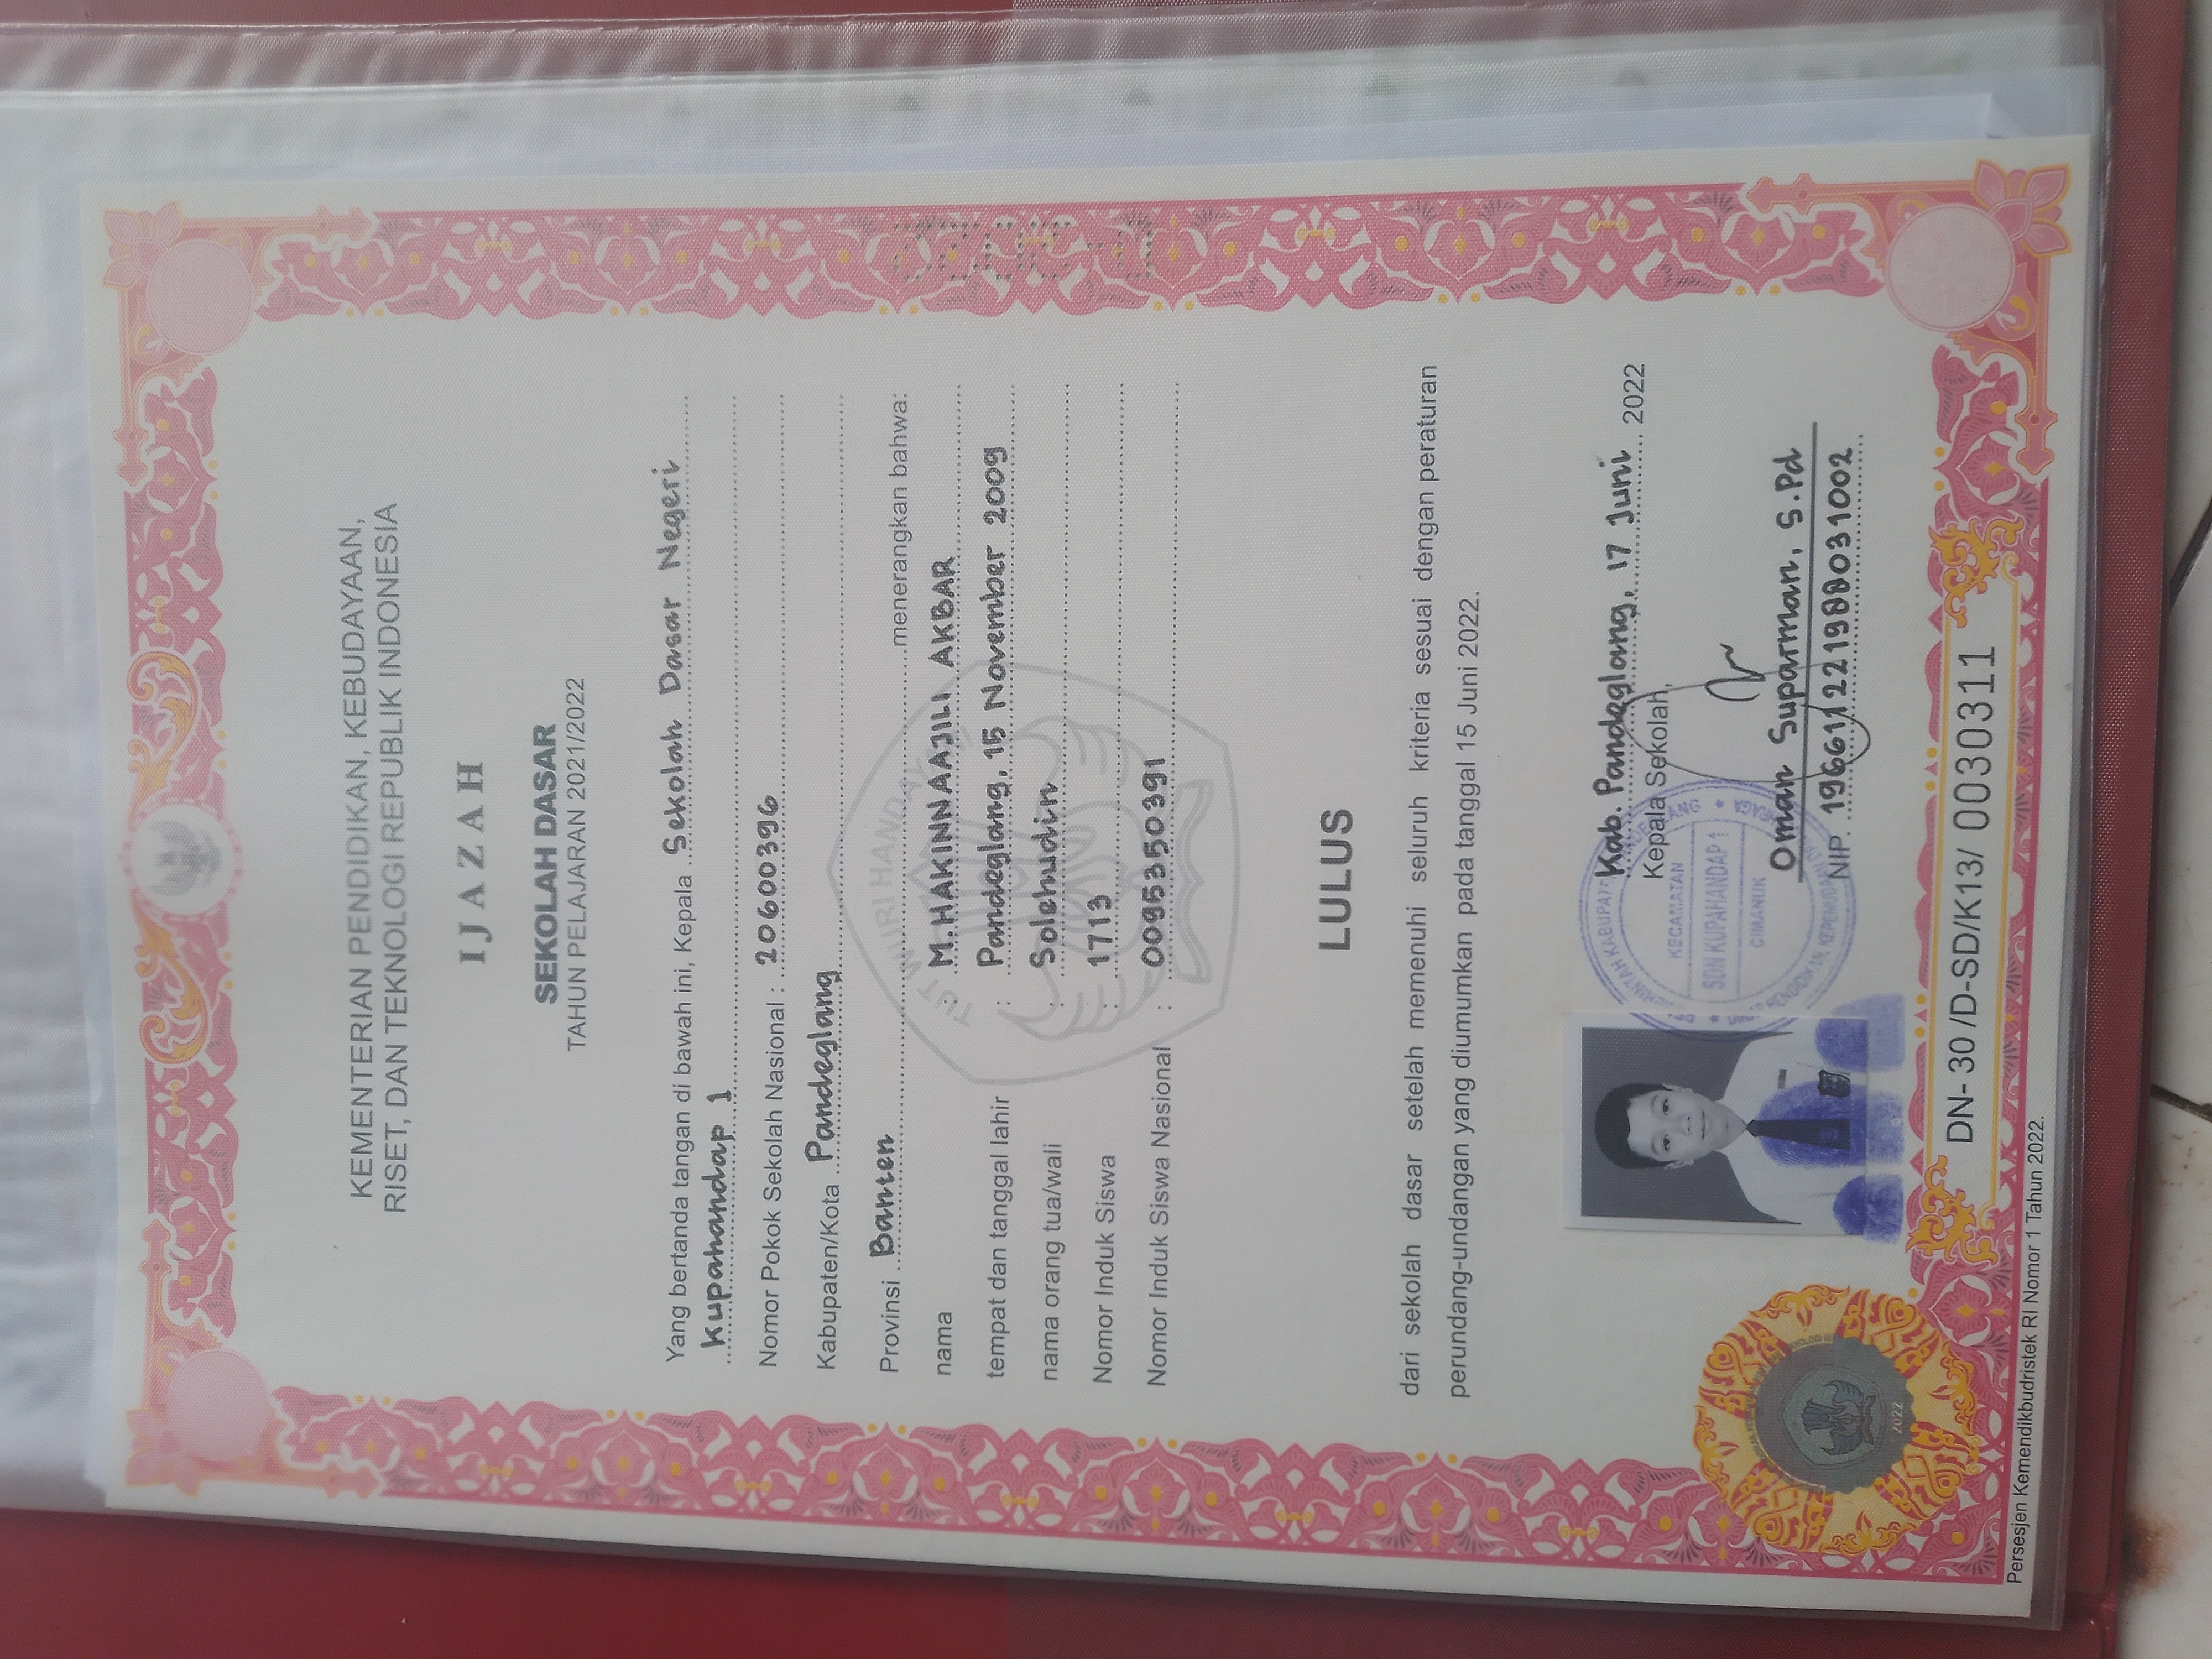 KEMENTERIAN PENDIDIKAN, KEBUDAYAAN,
RISET, DAN TEKNOLOGI REPUBLIK INDONESIA
IJAZAH
SEKOLAH DASAR
TAHUN PELAJARAN 2021/2022
Yang bertanda tangan di bawah ini, Kepala Sekolah Dasar Negeri
Kupahandap 1
Nomor Pokok Sekolah Nasional : 20600396
Kabupaten/Kota Pandeglang
Provinsi Banten menerangkan bahwa:
nama : M. HAKINNAAJILI AKBAR
tempat dan tanggal lahir : Pandeglang, 15 November 2009
nama orang tua/wali : Solehudin
Nomor Induk Siswa : 1713
Nomor Induk Siswa Nasional : 0095350391
TUT WURI HANDAYANI
LULUS
dari sekolah dasar setelah memenuhi seluruh kriteria sesuai dengan peraturan
perundang-undangan yang diumumkan pada tanggal 15 Juni 2022.
Kab. Pandeglang, 17 Juni 2022
Kepala Sekolah,
KECAMATAN
SDN KUPAHANDAP 1
CIMANUK
Oman Suparman, S.Pd
NIP. 196611221988031002
2022
DN- 30 /D-SD/K13/ 0030311
Persesjen Kemendikbudristek RI Nomor 1 Tahun 2022.